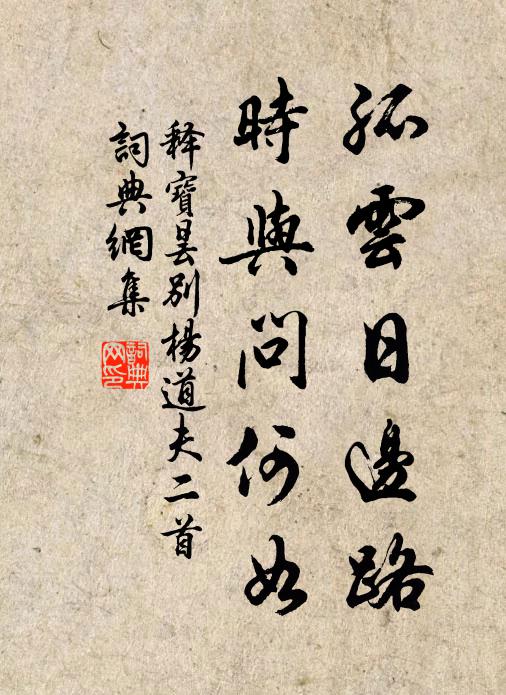 孤雲日邊路
時與問何如
釋寶曇別楊道夫二首
詞典網集
詞典網印